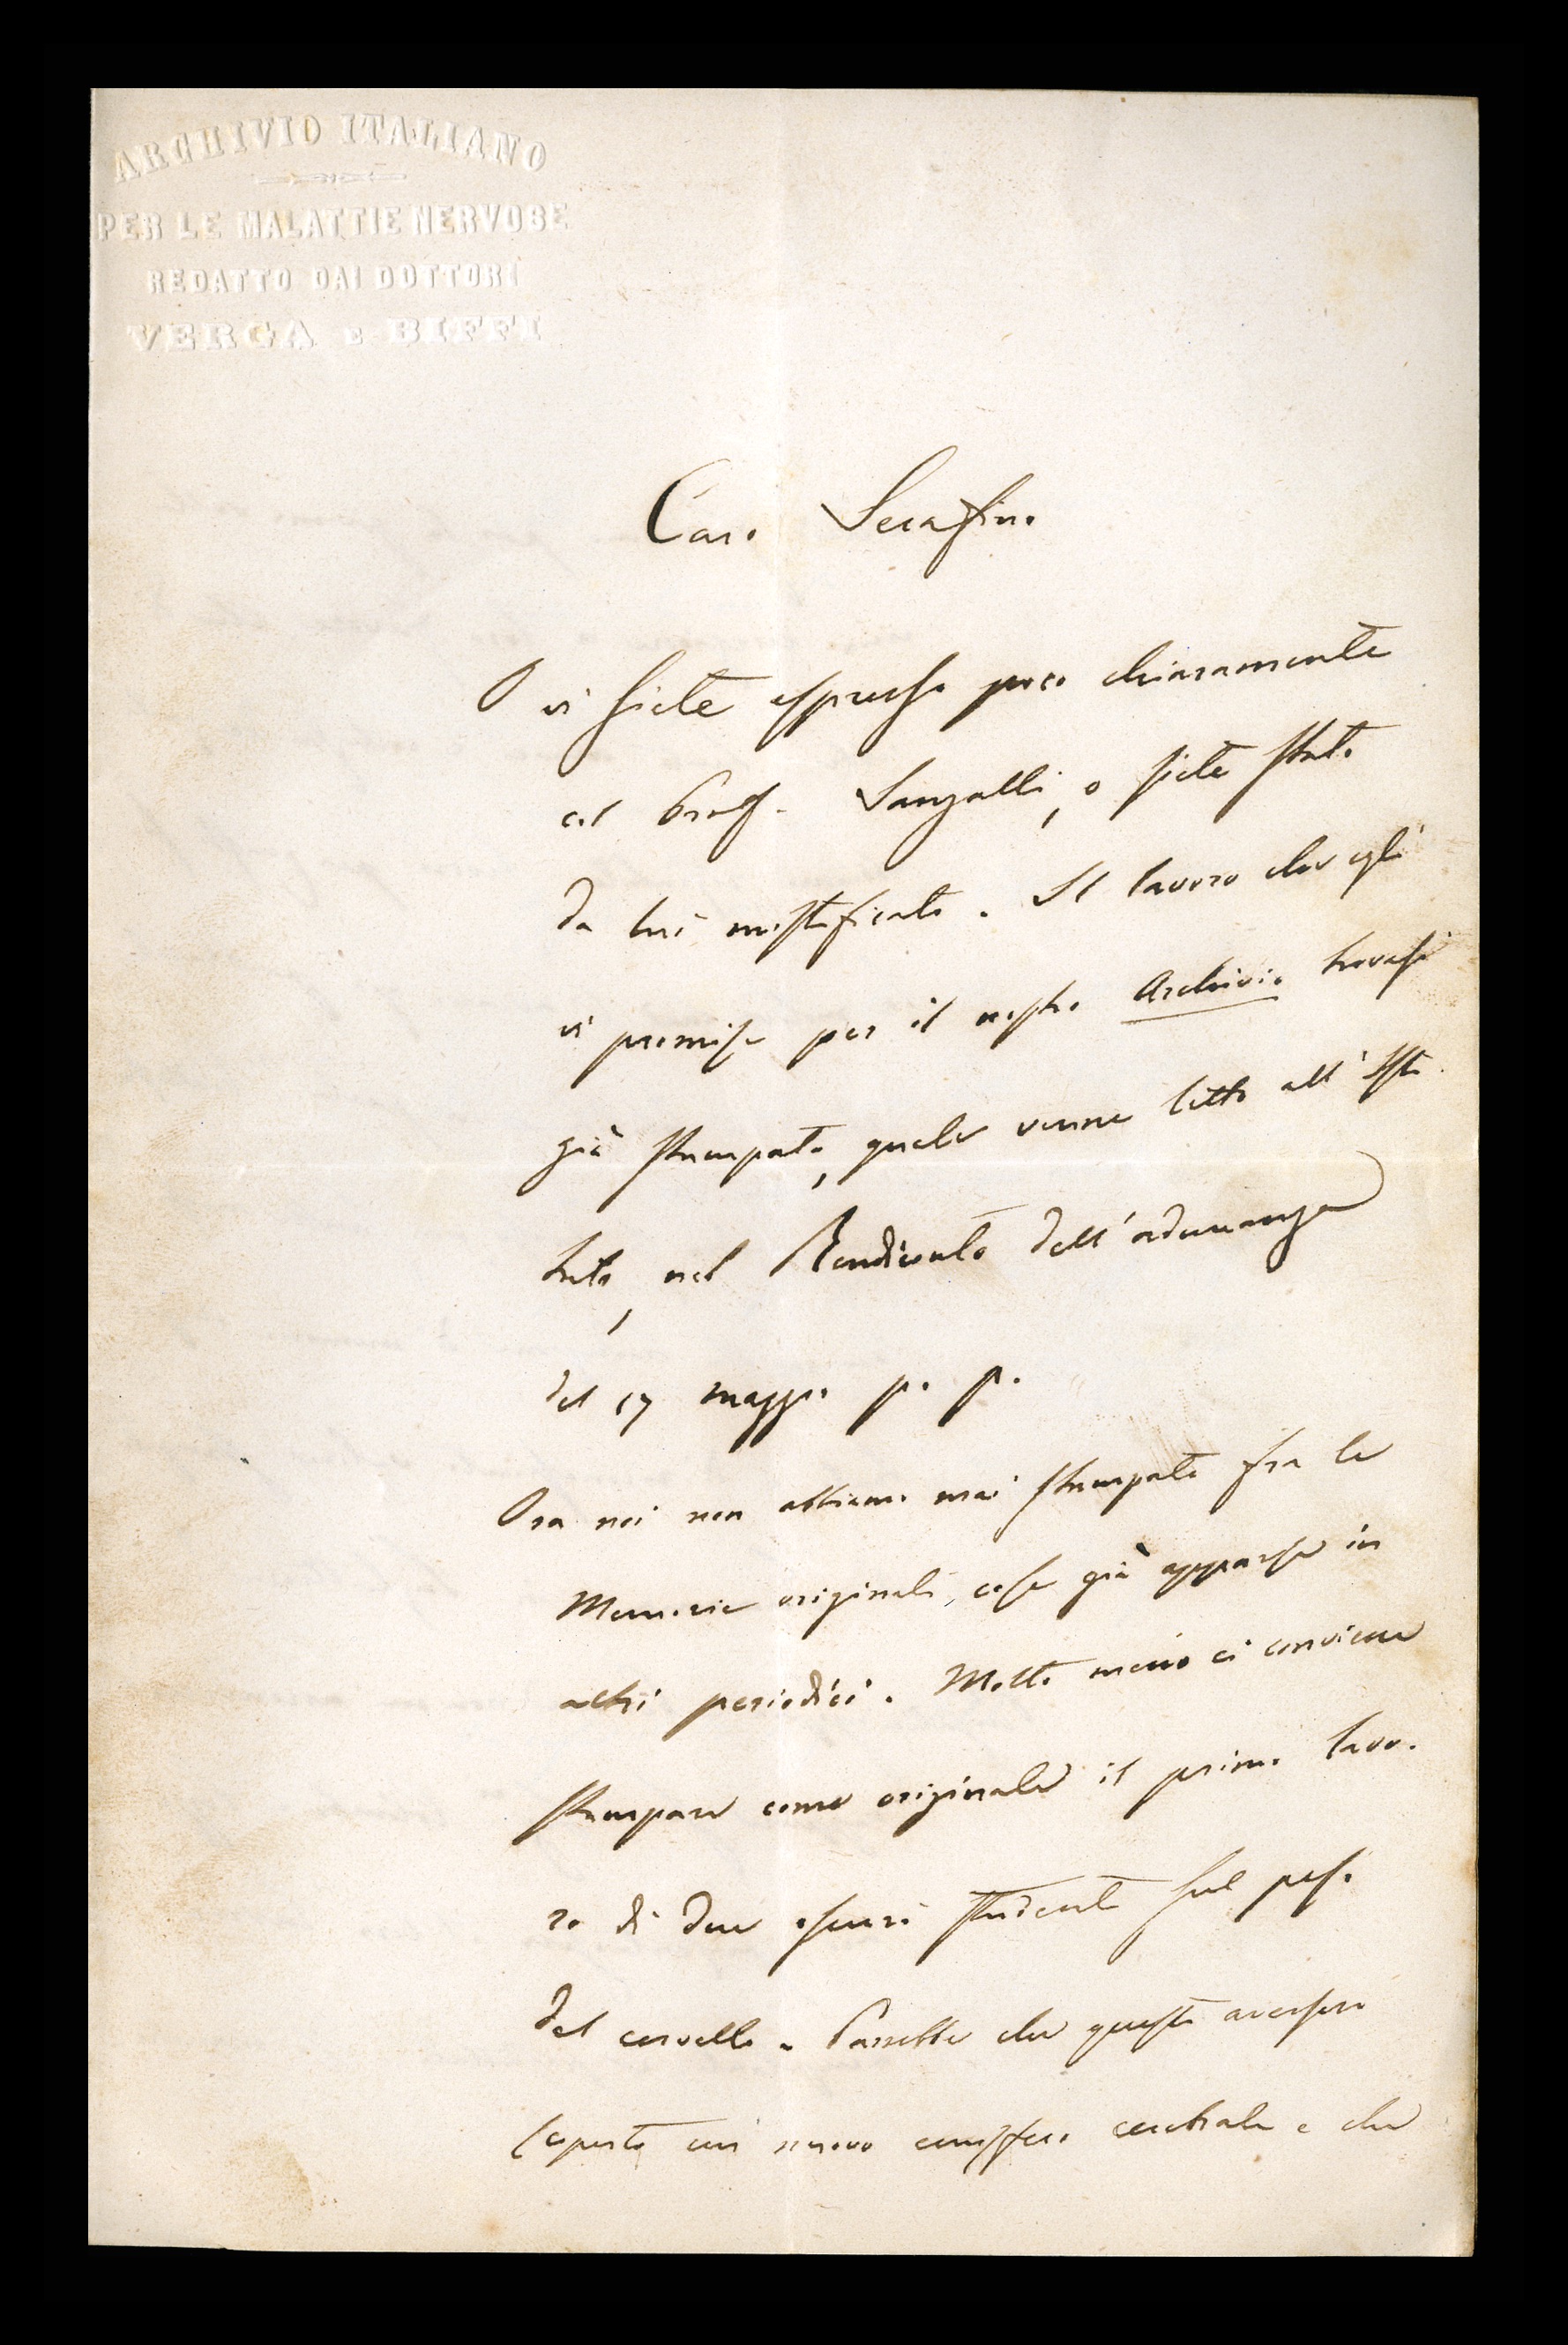 ARCHIVIO ITALIANO
PER LE MALATTIE NERVOSE
REDATTO DAI DOTTORI
VERGA E BIFFI
Caro Serafino
O vi siete espresso poco chiaramente
col Prof. Sangalli, o siete stato
da lui mistificato. Il lavoro che egli
vi promise per il nostro Archivio trovasi
già stampato, quale venne letto all'Isti
tuto, nel Rendiconto dell'adunanza
del 17 maggio p. p.
Ora noi non abbiamo mai stampato fra le
Memorie originali, cose già apparse in
altri periodici. Molto meno ci conviene
stampare come originale il primo lavo.
ro di due oscuri studenti sul peso
del cervello. Parrebbe che questi avessero
scoperto un nuovo emisfero cerebrale e che